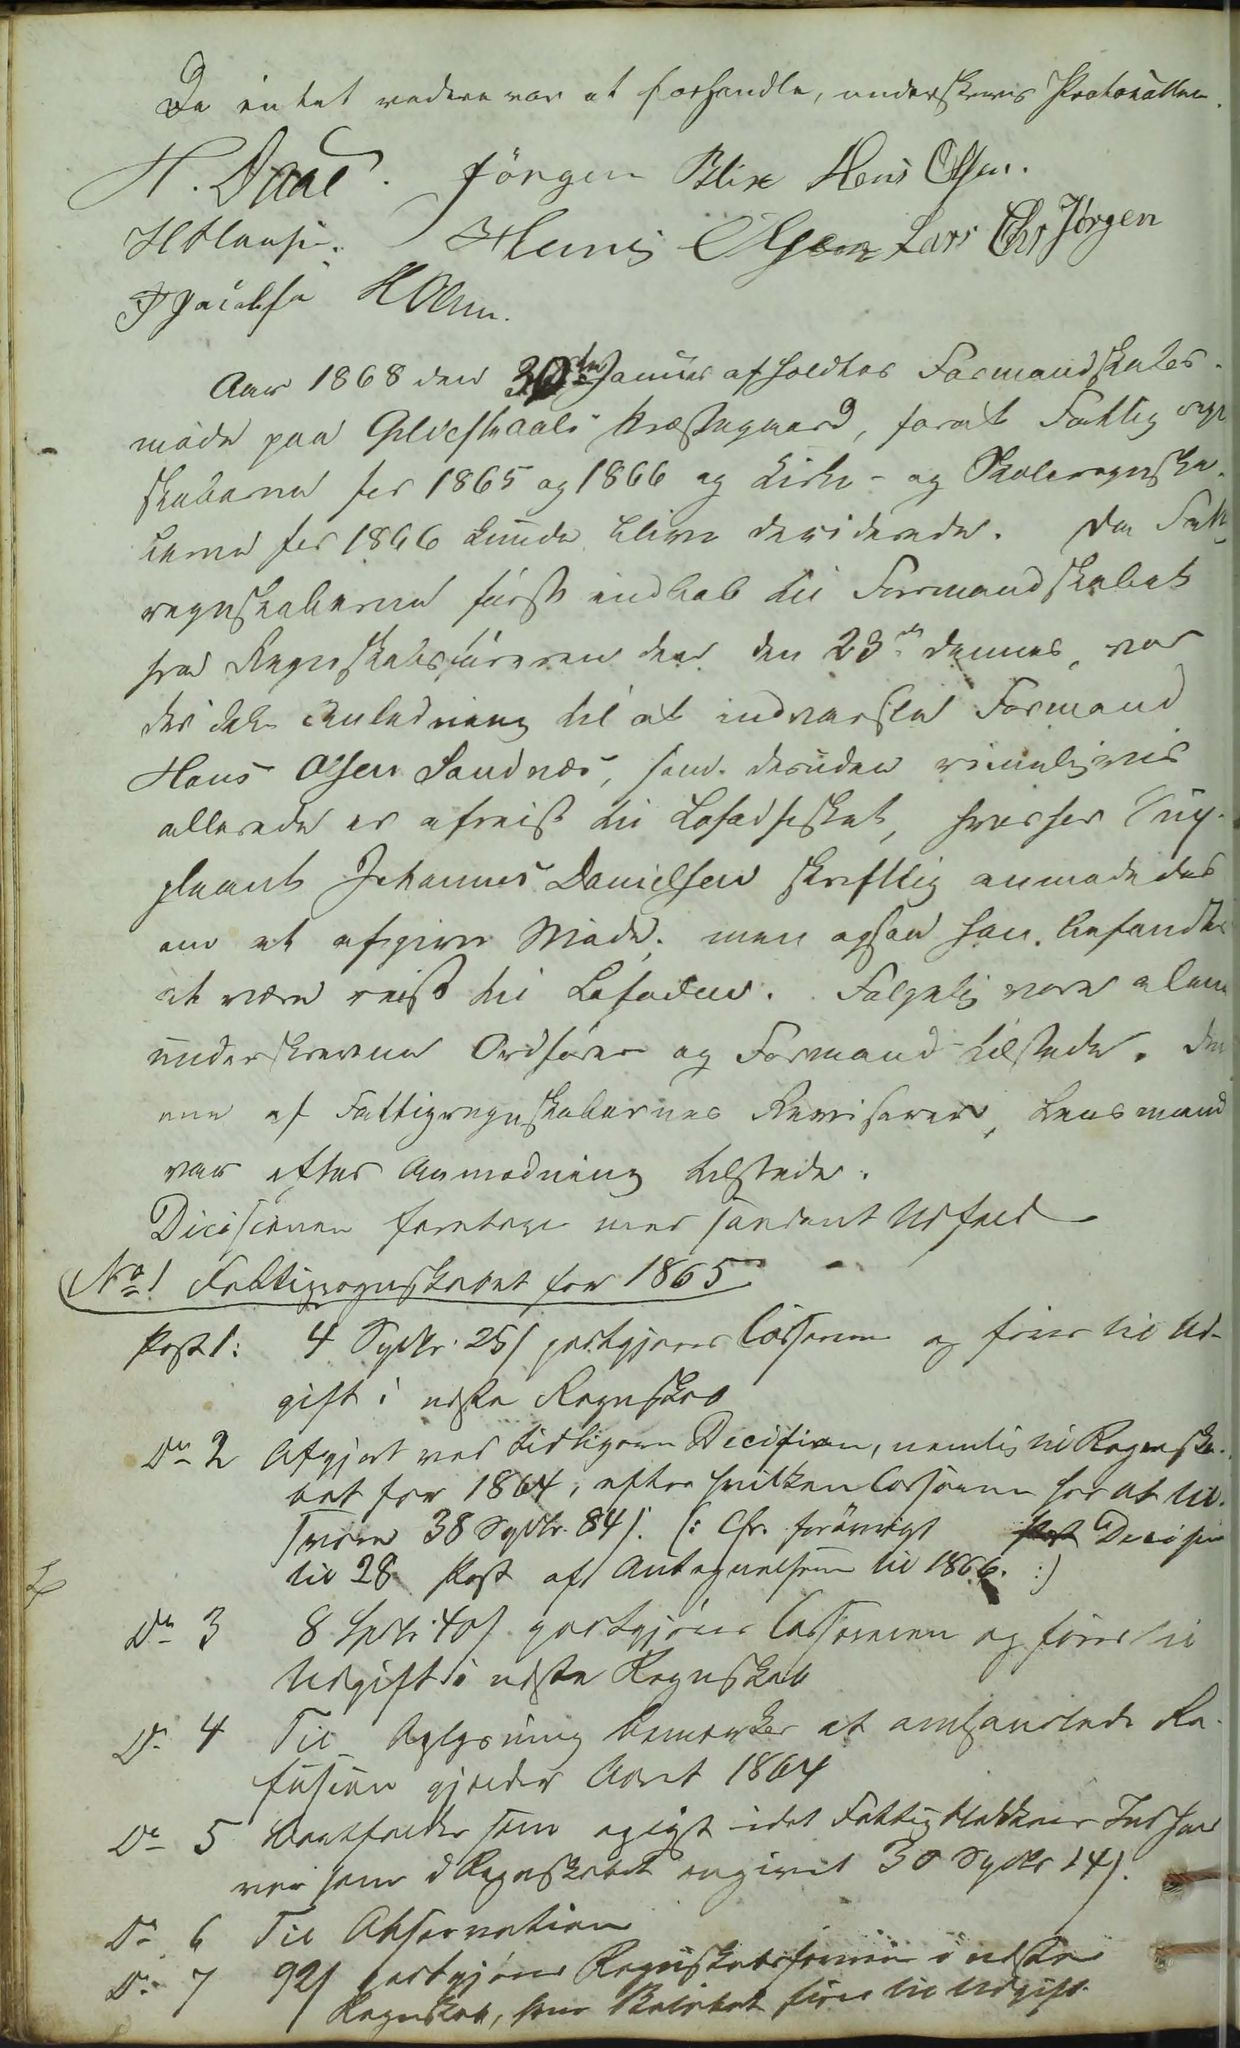 Da intet videre var at forhandle, underskreves Protokollen.
H. Daae. Jörgen Blix Hans Olsen.
Hans Olsen Lars Chr Jörgen
J Jacobsen H Olsen.
Aar 1868 den 30te Januar afholdtes Formandskabs-
möde paa Gildeskaals Præstegaard, forat Fattigregn
skaberne for 1865 og 1866 og Kirke- og Skoleregnska-
berne for 1866 kunde blive deciderede. Da Fattig
regnskaberne først indkom til Formandskabet
fra Regnskabsföreren den 23de dennes, var
der ikke Anledning til at indvarsle Formand
Hans Olsen Sandnes, som desuden rimeligvis
allerede er afreist til Lofodfisket, hvorfor Sup-
pleant Johannes Danielsen skriftlig anmodedes
om at afgive Möde, men ogsaa han befandtes
at være reist til Lofoden. Følgelig vare alene
underskrevne Ordförer og Formand tilstede. Den
ene af Fattigregnskabernes Revisorer, Lensmand
var efter Anmodning tilstede.
Decisionen foretoges med saadant Udfald
No 1 Fattigregnskabet for 1865
Post 1: 4 Spdlr. 25 s godtgjöres Cassereren og föres til Ud-
gift i næste Regnskab
Do 2 Afgjort ved tidligere Decision, nemlig til Regnska-
bet for 1864, efter hvilken Cassereren har at til-
svare 38 Spdlr. 84 s. (: Cfr. forövrigt Decision
til 28 Post af Antegnelserne til 1866. :)
Do 3 8 Spdlr. 40 s godtgjöres Cassereren og föres til
Udgift i næste Regnskab
Do 4 Til Oplysning bemærkes at omhandlede Re-
fusion gjælder Aaret 1864
Do 5 Bortfalder som opgjort idet Fattigkassens
var som i Regnskabet angivet 30 Spdlr 14 s.
Do 6 Til Observation
Do 7 92 s godtgjöres Regnskabsföreren i næste
Regnskab, hvor Beløbet föres til Udgift.